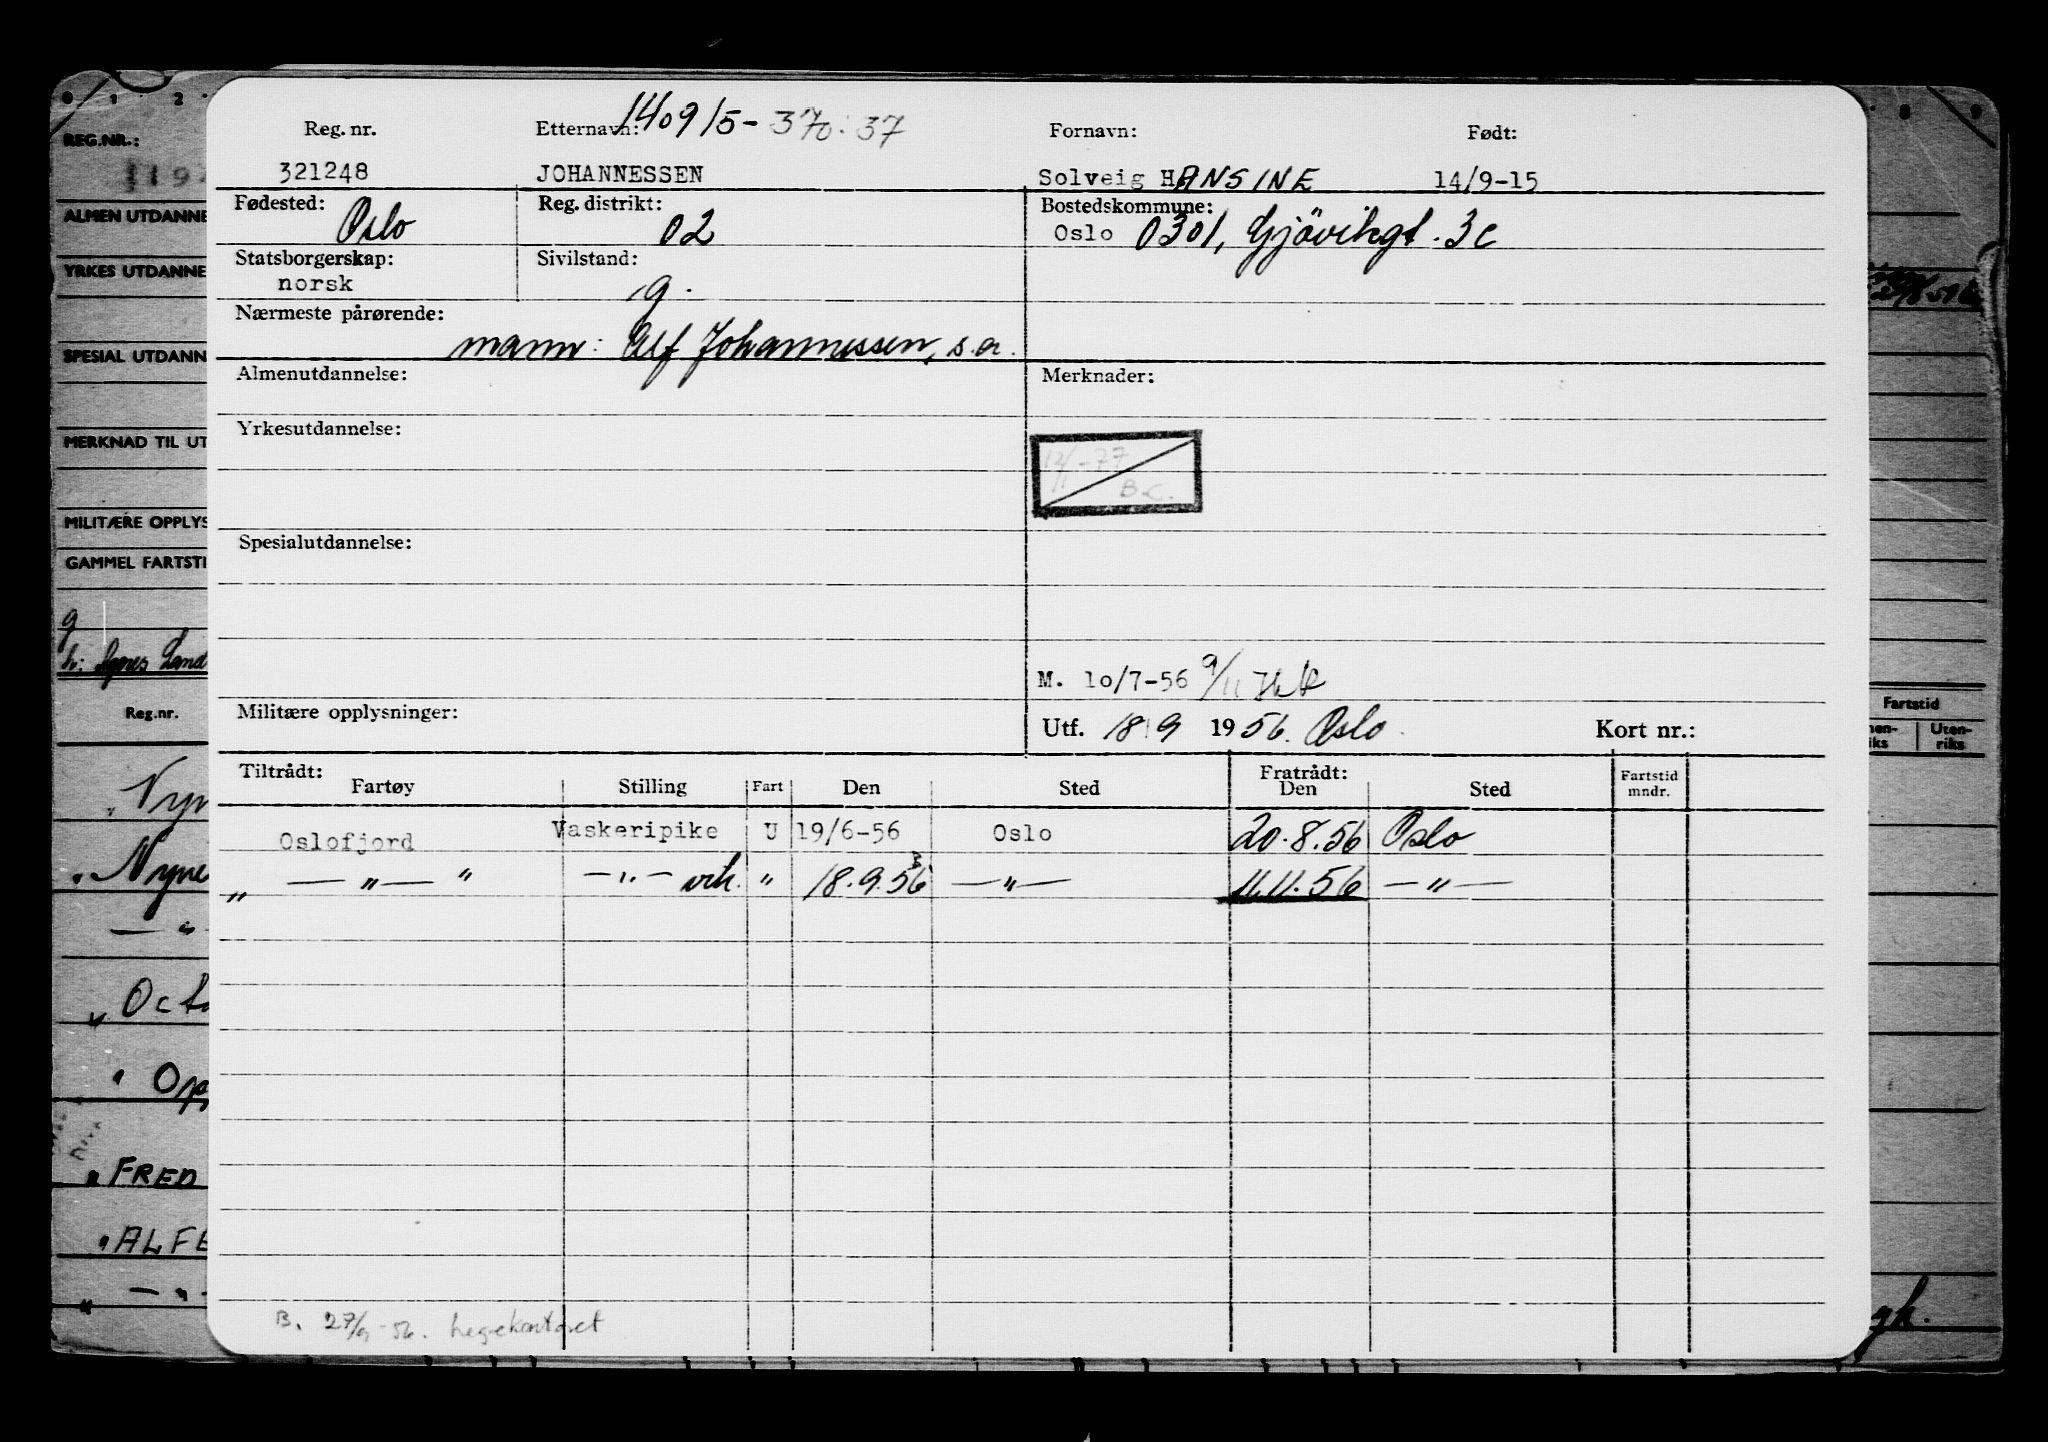 0 1 2 8 9
REG.NR.:
ALMEN UTDANNE
YRKES UTDANNE
SPESIAL UTDANN
MERKNAD TIL UT
MILITÆRE OPPLYS
GAMMEL FARTSTI
g
h: Agnes Land
Reg.nr.
Nyn
Nyn
— " -
Oct
Op
FRED
ALFE
— " -
140915-370:37
Reg. nr. Etternavn: Fornavn: Født:
321248 JOHANNESSEN Solveig HANSINE 14/9-15
Fødested: Reg. distrikt: Bostedskommune:
Oslo 02 Oslo 0301, Gjövikgt. 3c
Statsborgerskap: Sivilstand:
norsk g.
Nærmeste pårørende:
mann: Alf Johannessen, s.a.
Almenutdannelse: Merknader:
Yrkesutdannelse:
12/11-77
B.C.
Spesialutdannelse:
M. 10/7-56 9/11
Militære opplysninger: Utf. 18/9 1956. Oslo. Kort nr.:
Tiltrådt: Fratrådt: Fartstid
Fartøy Stilling Fart Den Sted Den Sted mndr.
Oslofjord Vaskeripike U 19/6-56 Oslo 20.8.56 Oslo
" — " — " — " — vik. " 18.9.56 — " — 11.11.56 — " —
B. 27/9-56. legekontoret
Fartstid
nen-
iks
Uten-
riks
gh.